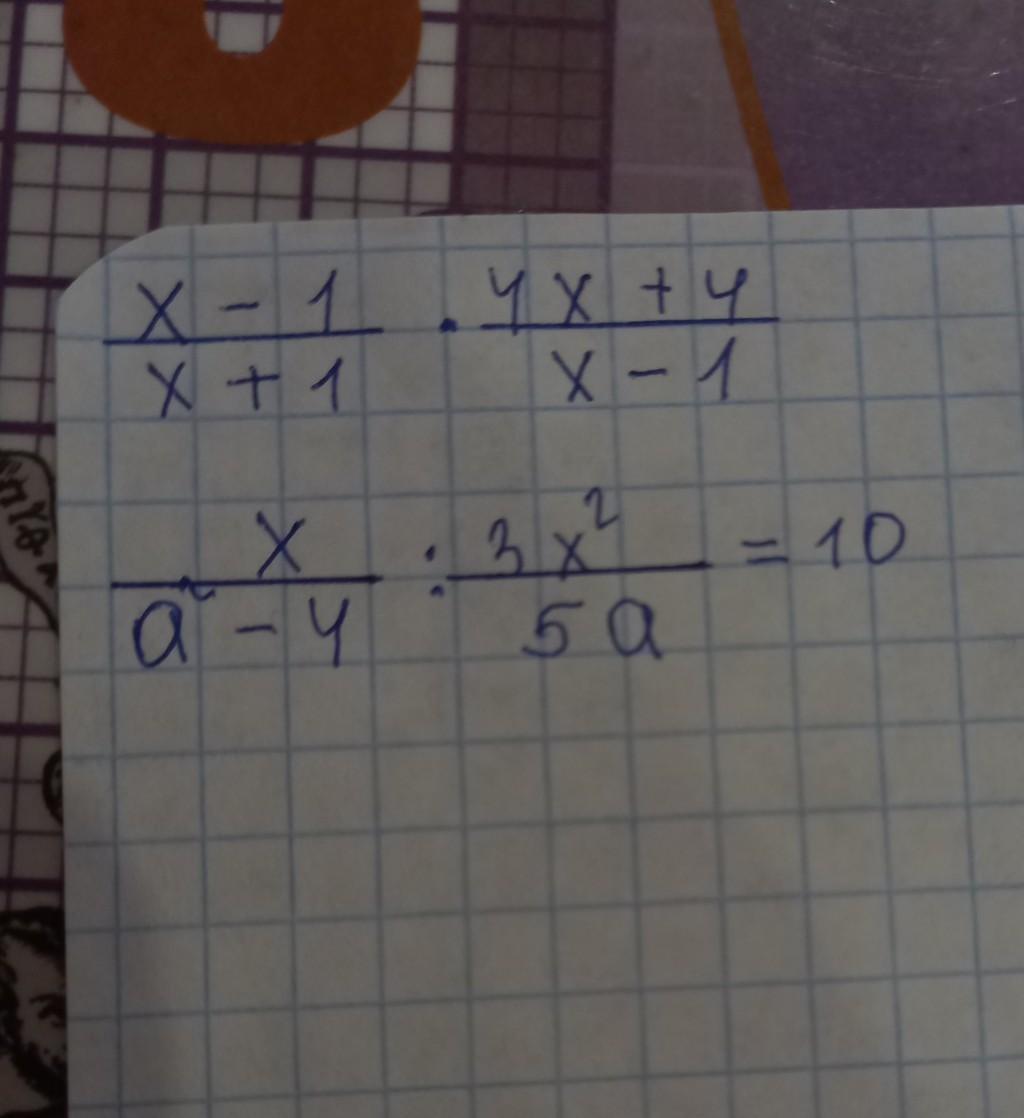 x - 1 / x + 1 · 4x + 4 / x - 1
x / a² - 4 : 3x² / 5a = 10